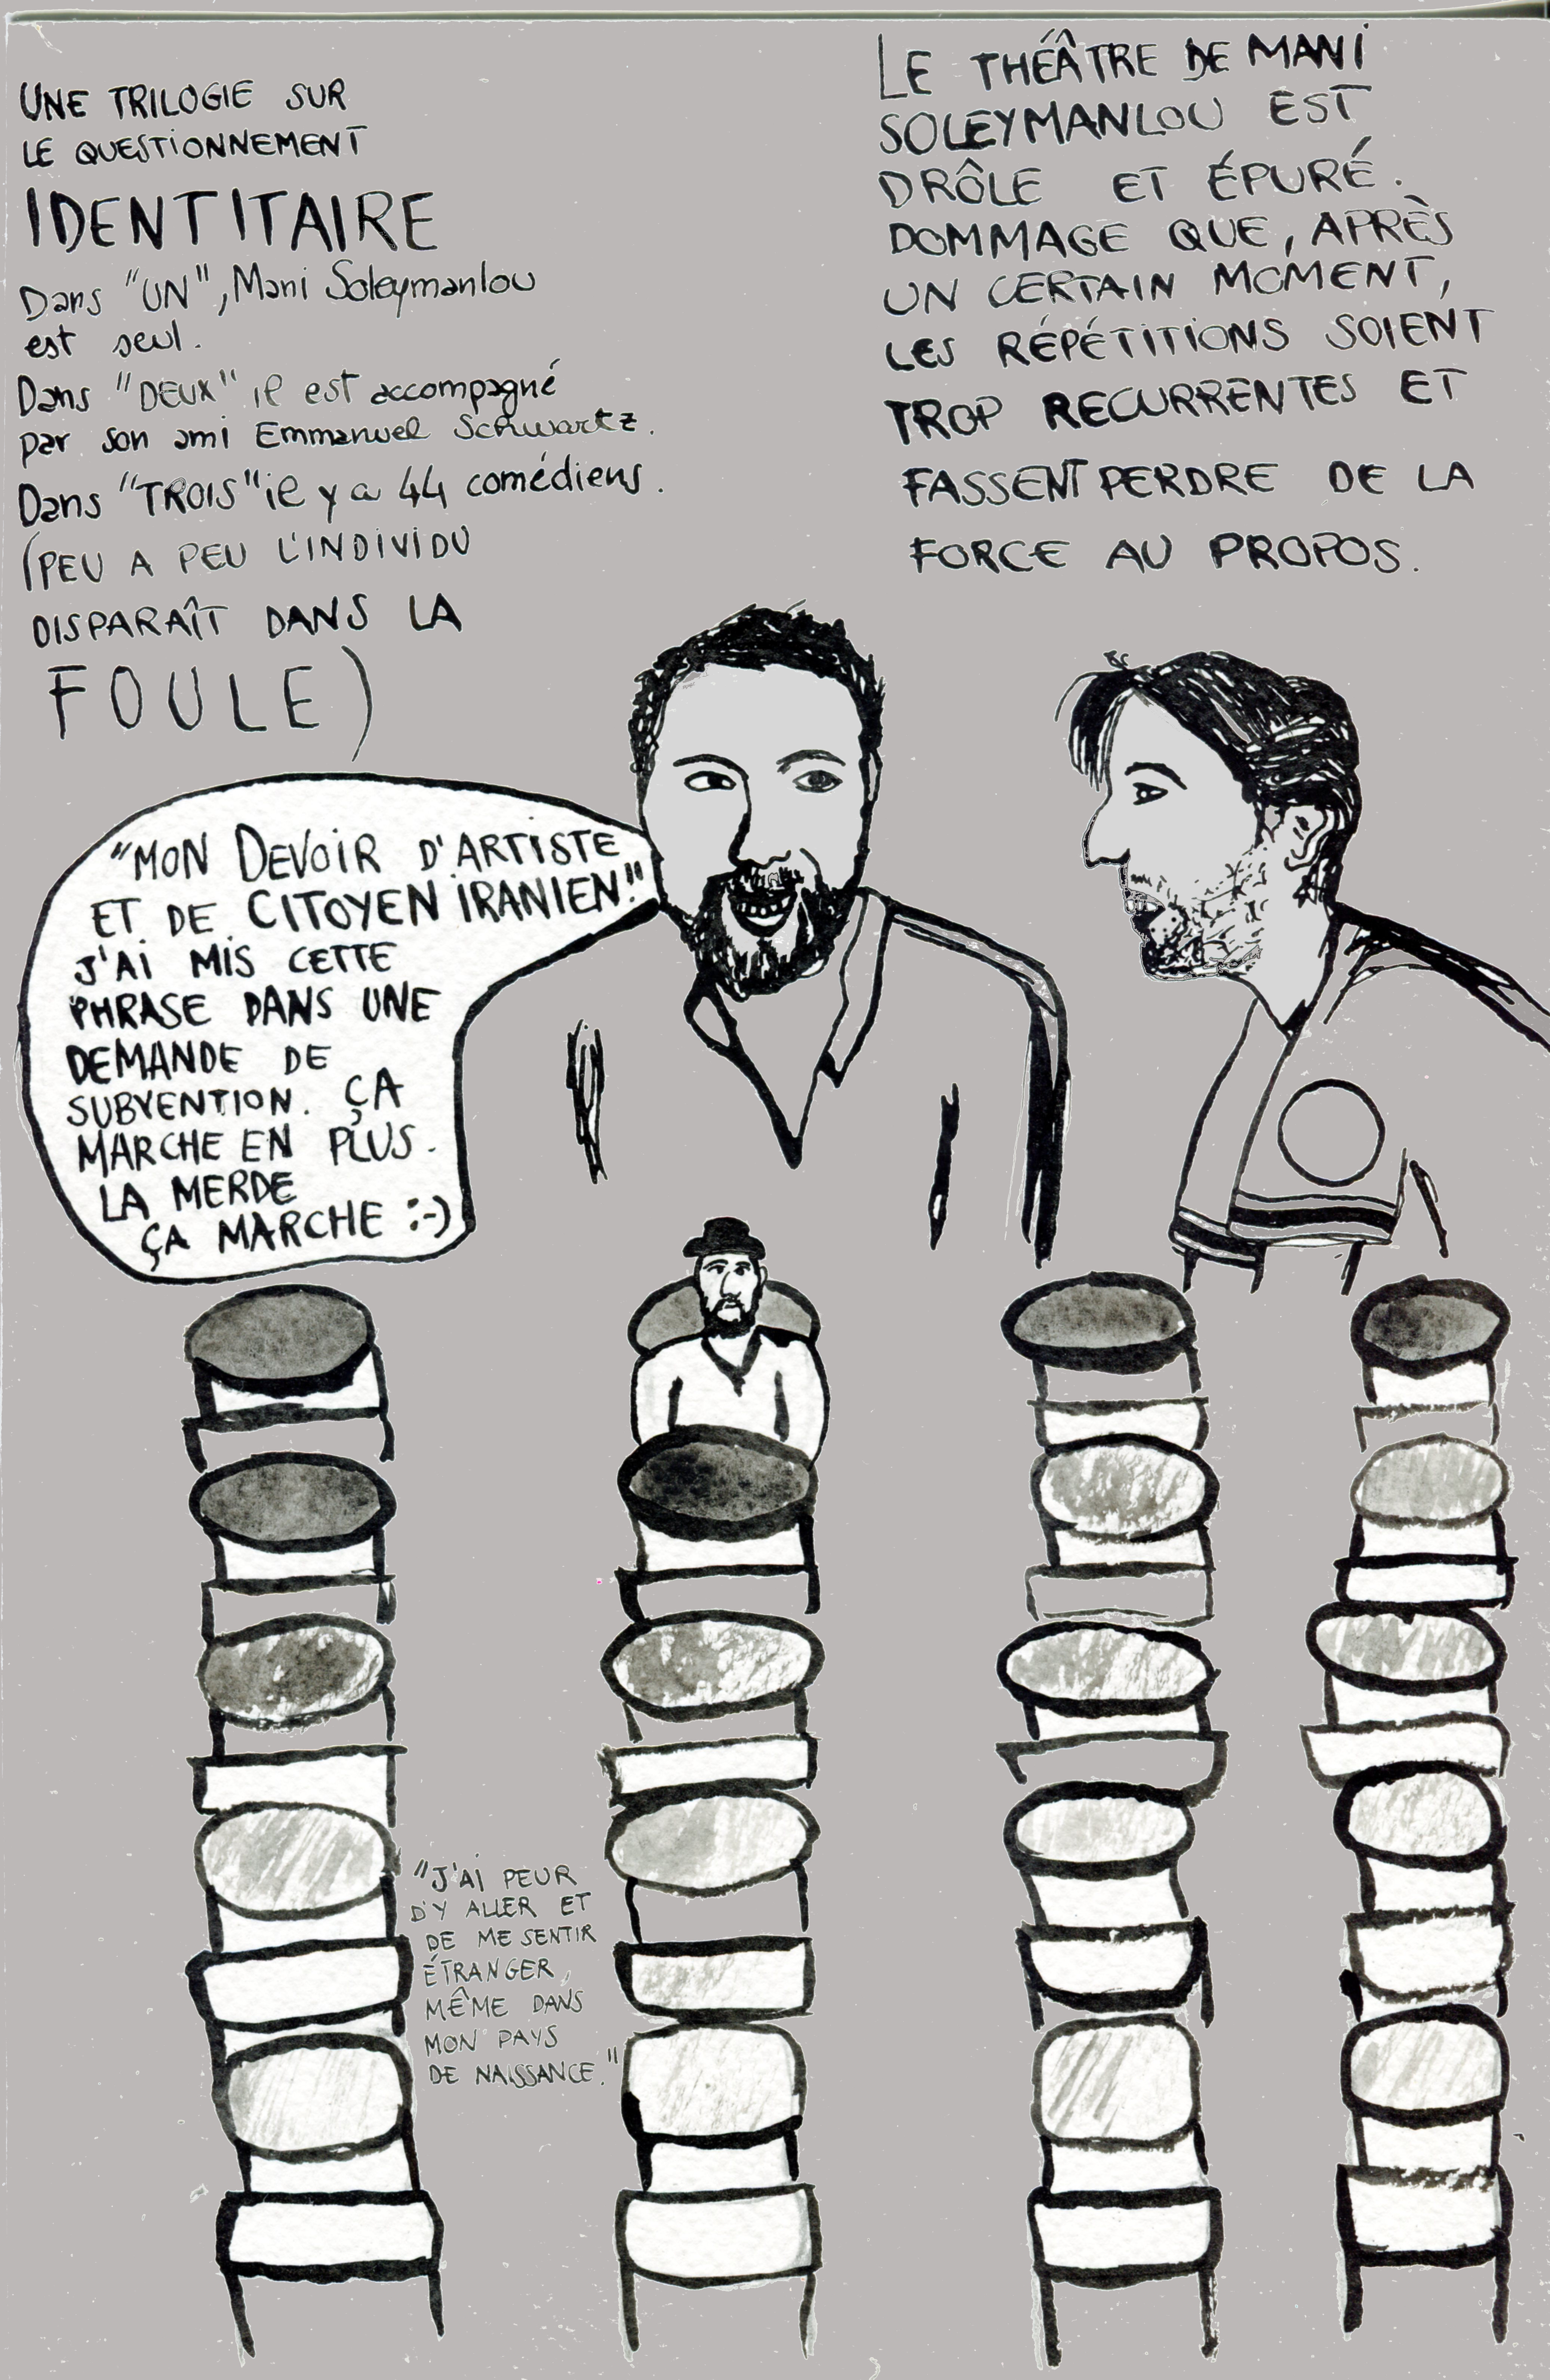 UNE TRILOGIE SUR
LE QUESTIONNEMENT
IDENTITAIRE
Dans "UN", Mani Soleymanlou
est seul.
Dans "DEUX" il est accompagné
par son ami Emmanuel Schwartz.
Dans "TROIS" il y a 44 comédiens.
(PEU A PEU L'INDIVIDU
DISPARAÎT DANS LA
FOULE)
LE THÉÂTRE DE MANI
SOLEYMANLOU EST
DRÔLE ET ÉPURÉ.
DOMMAGE QUE, APRÈS
UN CERTAIN MOMENT,
LES RÉPÉTITIONS SOIENT
TROP RECURRENTES ET
FASSENT PERDRE DE LA
FORCE AU PROPOS.
"MON DEVOIR D'ARTISTE
ET DE CITOYEN IRANIEN!"
J'AI MIS CETTE
PHRASE DANS UNE
DEMANDE DE
SUBVENTION. ÇA
MARCHE EN PLUS.
LA MERDE
ÇA MARCHE :-)
"J'AI PEUR
D'Y ALLER ET
DE ME SENTIR
ÉTRANGER,
MÊME DANS
MON PAYS
DE NAISSANCE."